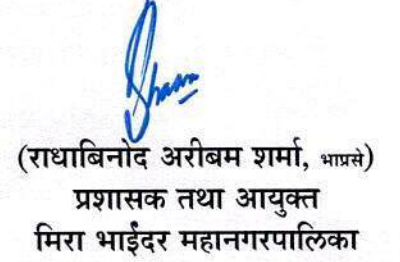 (राधाबिनोद अरीबम शर्मा, भाप्रसे)
प्रशासक तथा आयुक्त
मिरा भाईंदर महानगरपालिका